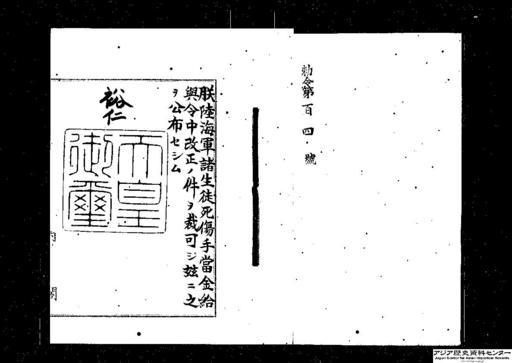 勅令第百四號
朕陸海軍諸生徒死傷手當金給
與令中改正ノ件ヲ裁可シ茲ニ之
ヲ公布セシム
裕仁
天皇
御璽
内閣
アジア歴史資料センター
Japan Center for Asian Historical Records